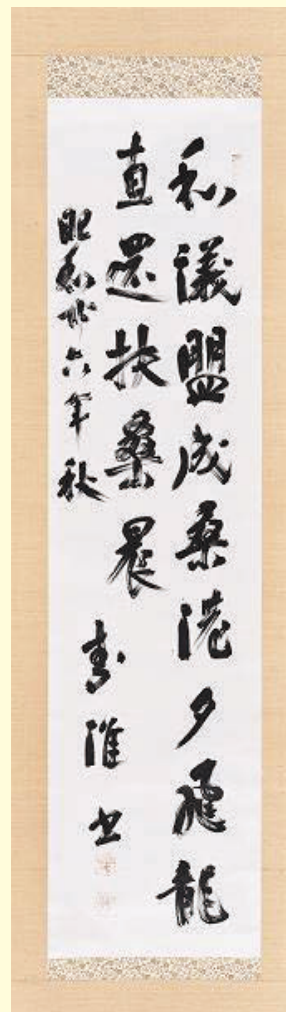 和議盟成桑港夕飛龍
直還扶桑晨
昭和廿六年秋
素淮書